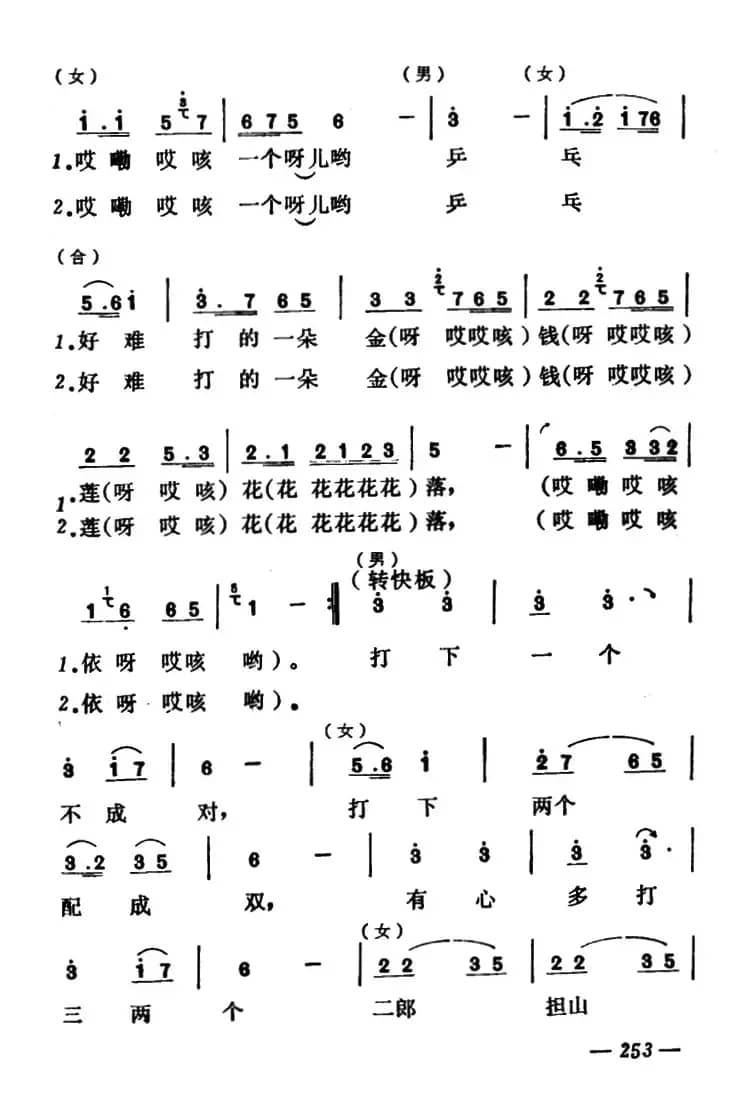 （女） （男） （女）
i . i 5 3 7 | 6 7 5 6 — | 3 — | i . 2 i 7 6 |
1.哎嘞 哎咳 一个呀儿哟 乒 乓
2.哎嘞 哎咳 一个呀儿哟 乒 乓
（合）
5 . 6 i | 3 . 7 6 5 | 3 3 2 7 6 5 | 2 2 2 7 6 5 |
1.好 难 打 的 一朵 金(呀 哎哎咳)钱(呀 哎哎咳)
2.好 难 打 的 一朵 金(呀 哎哎咳)钱(呀 哎哎咳)
2 2 5 . 3 | 2 . 1 2 1 2 3 | 5 — | 6 . 5 3 3 2 |
1.莲(呀 哎 咳) 花(花 花花花花)落， (哎 嘞哎咳
2.莲(呀 哎 咳) 花(花 花花花花)落， (哎 嘞哎咳
（男）
（转快板）
1 1 6 6 5 | 6 1 — :‖ 3 3 | 3 3 . |
1.依 呀 哎咳 哟)。 打 下 一 个
2.依 呀 哎咳 哟)。
（女）
3 i 7 | 6 — | 5 . 6 i | 2 7 6 5 |
不 成 对， 打 下 两个
3 . 2 3 5 | 6 — | 3 3 | 3 3 . |
配 成 双， 有 心 多 打
（女）
3 i 7 | 6 — | 2 2 3 5 | 2 2 3 5 |
三 两 个 二郎 担山
— 253 —